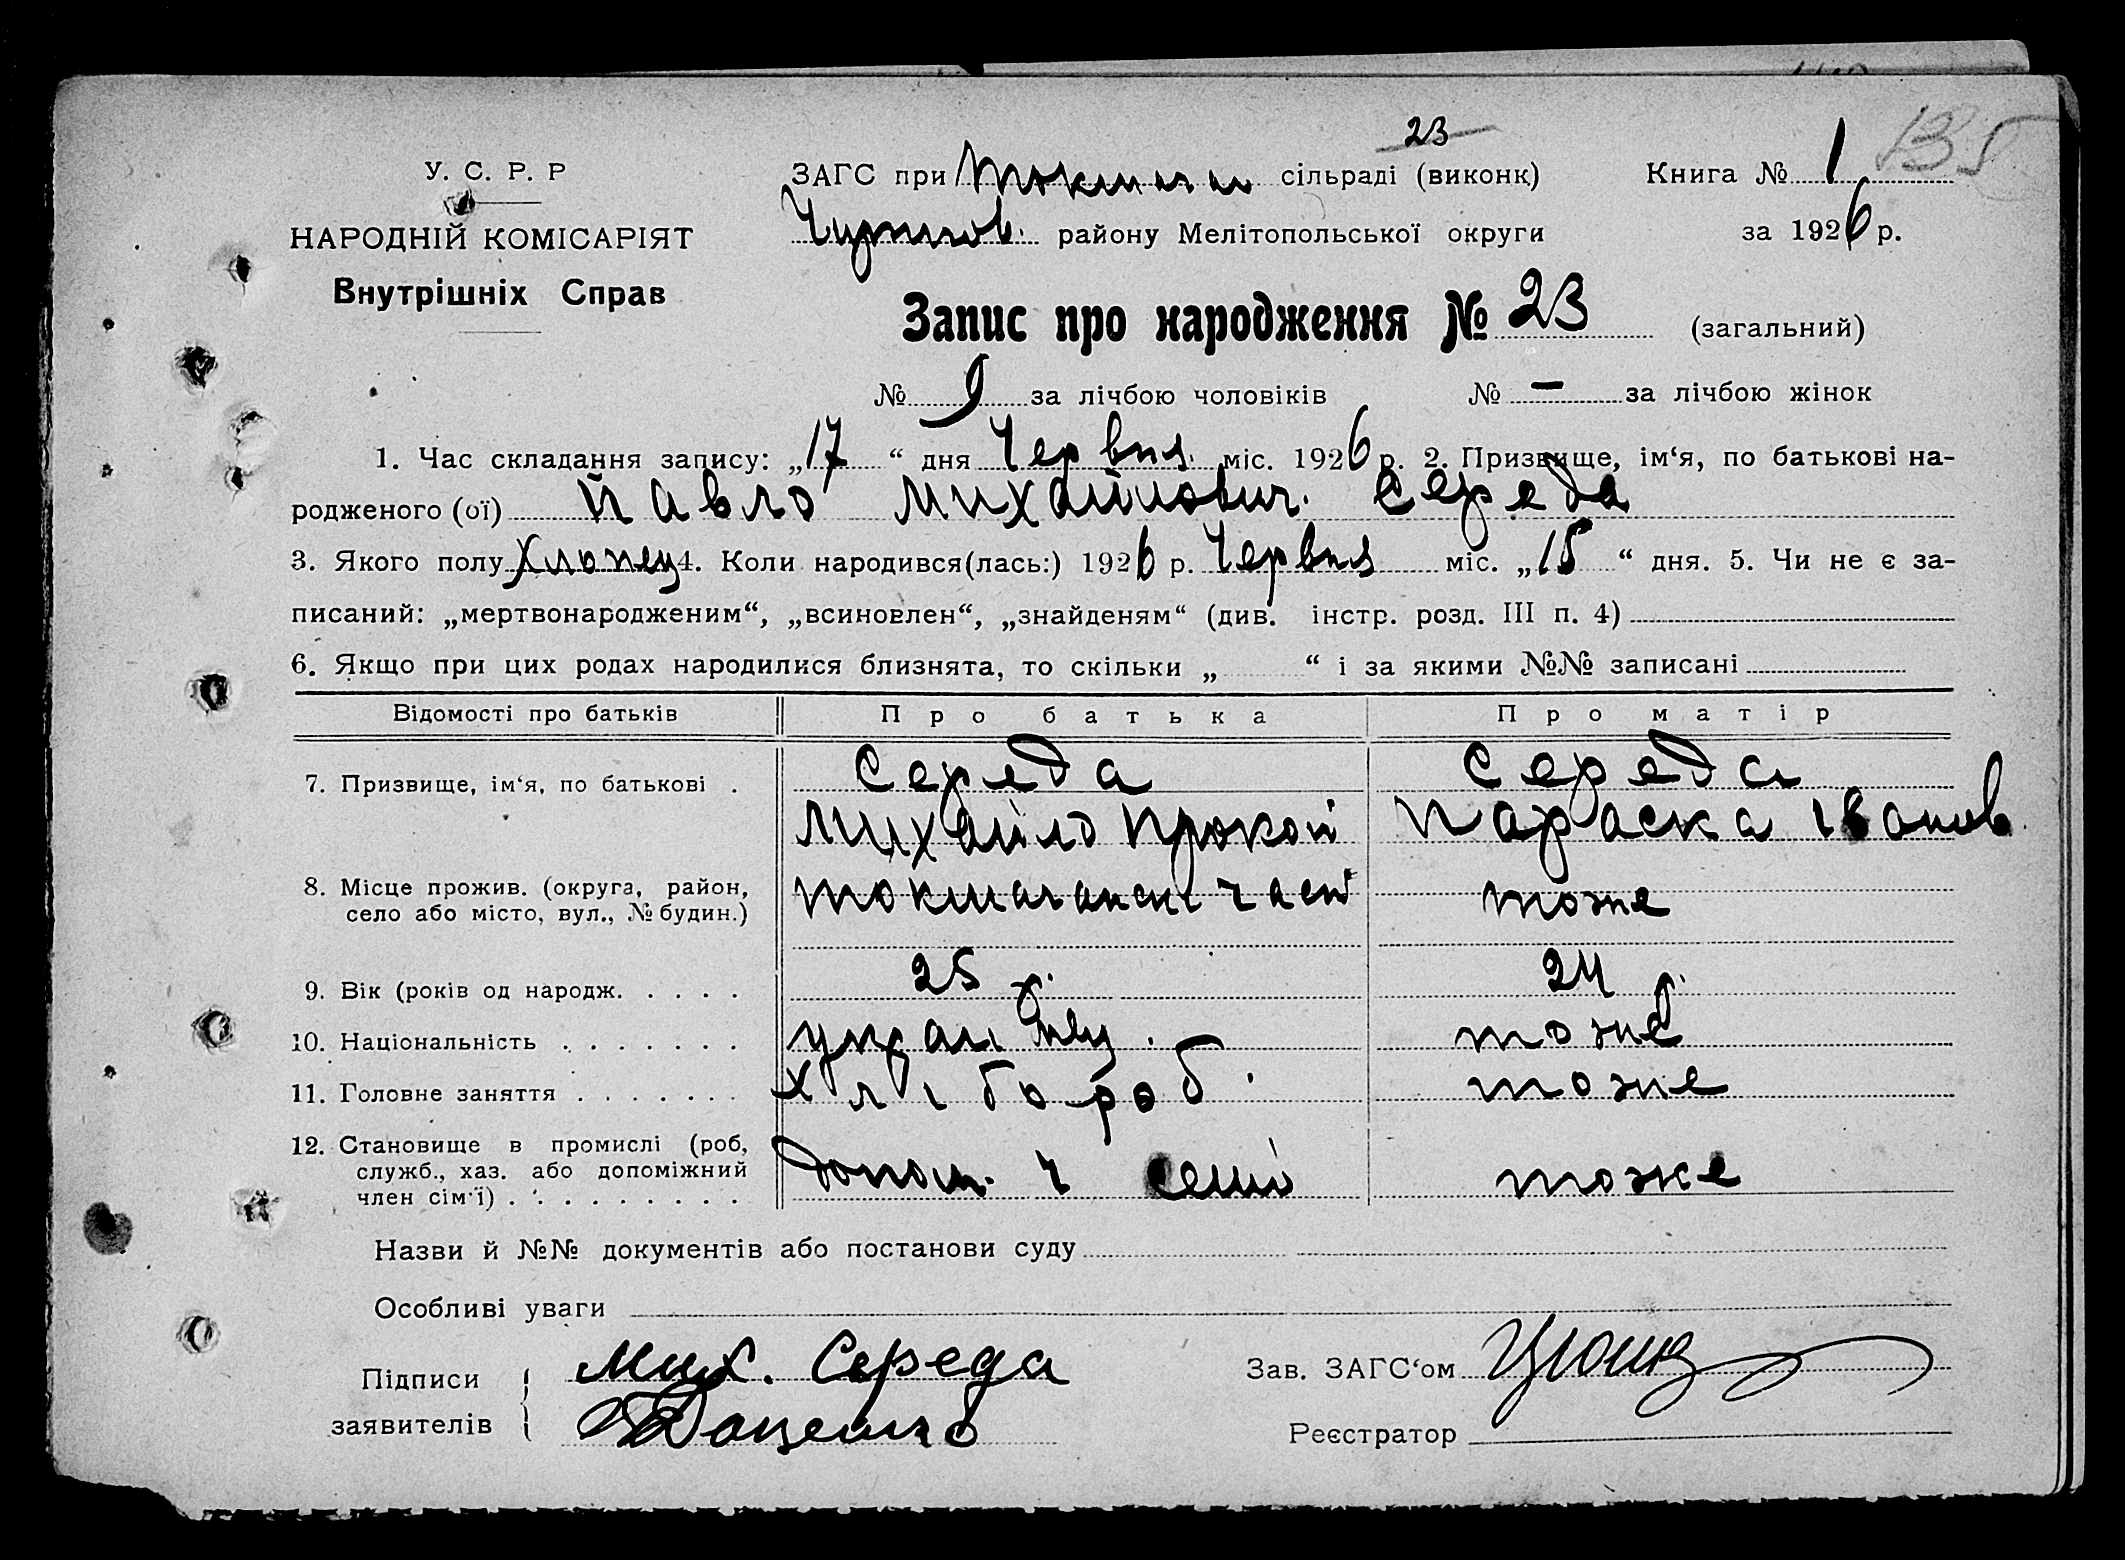 23
135
У. С. Р. Р
НАРОДНІЙ КОМІСАРІЯТ
Внутрішніх Справ
ЗАГС при сільраді (виконк)
району Мелітопольської округи
Книга № 1
за 1926 р.
Запис про народження № 23 (загальний)
№ 9 за лічбою чоловіків № — за лічбою жінок
1. Час складання запису: „17“ дня Червня міс. 1926 р. 2. Призвище, ім‘я, по батькові на-
родженого (ої) Павло Михайлович. Середа
3. Якого полу Хлопец 4. Коли народився(лась:) 1926 р. Червня міс. „15“ дня. 5. Чи не є за-
писаний: „мертвонародженим“, „всиновлен“, „знайденям“ (див. інстр. розд. III п. 4)
6. Якщо при цих родах народилися близнята, то скільки „ “ і за якими №№ записані
Відомості про батьків Про батька Про матір
7. Призвище, ім‘я, по батькові . Середа Середа
Михайло Прокоп Параска Іванов
8. Місце прожив. (округа, район,
село або місто, вул., № будин.) тоже
9. Вік (років од народж. . . . . 25 р. 24 р.
10. Національність . . . . . . . україنец. тоже
11. Головне заняття . . . . . . . хлібороб. тоже
12. Становище в промислі (роб,
служб., хаз. або допоміжний
член сім‘ї) . . . . . . . . . допом. ч семі тоже
Назви й №№ документів або постанови суду
Особливі уваги
Підписи
заявителів
Мих. Середа
Доценко
Зав. ЗАГС‘ом
Реєстратор